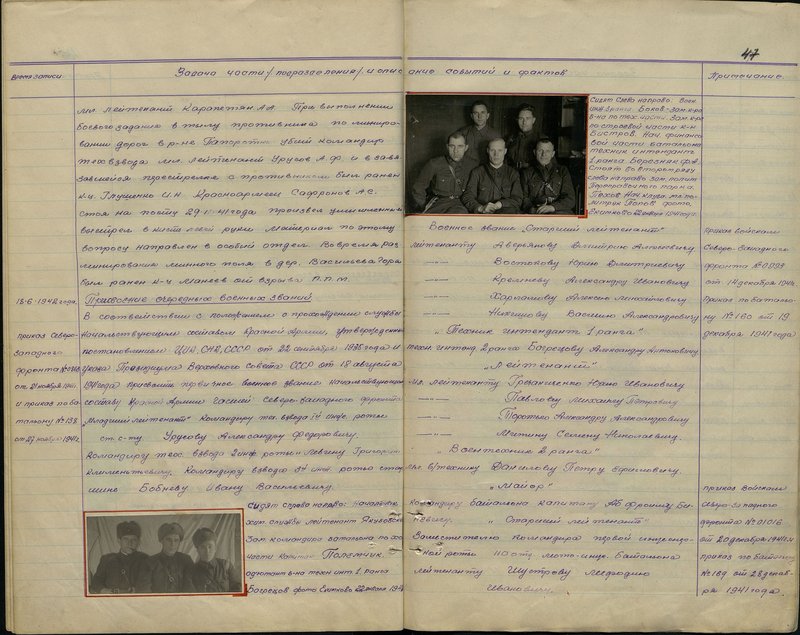 47
Время записи
Задача части /подразделения/ и описание событий и фактов
Примечание
мл. лейтенант Карапетян А.А. При выполнении
боевого задания в тылу противника по миниро-
ванию дорог в р-не убит командир
тех взвода мл. лейтенант Урусов А.Ф. и в завя-
завшейся перестрелке с противником был ранен
к-ц Глущенко И.Н. Красноармеец Сафронов А.С.
стоя на посту 29 1941 года произвел умышленный
выстрел в кисть левой руки. Материал по этому
вопросу направлен в особый отдел. Во время раз
минирования минного поля в дер. Васильева Гора
был ранен к-ц от взрыва П.П.М.
18-6-1942 года.
Присвоение очередных военных званий
В соответствии с положением о прохождении службы
приказ Северо-
Западного
фронта №
от 21 ноября 1941
и приказ по ба
тальону № 138
от 27 ноября 1941 г.
начальствующим составом Красной Армии, утвержденного
постановлением ЦИК, СНК, СССР от 22 сентября 1935 года и
указа Президиума Верховного Совета СССР от 18 августа
1941 года присвоить первичное военное звание начальствующему
составу Красной Армии частей Северо-Западного фронта
"Младший лейтенант" командиру тех. взвода инж. роты
ст. с-ту Урусову Александру Федоровичу.
Командиру тех. взвода 2 инж. роты Левину Григорию
Климентьевичу. Командиру взвода 3й инж. роты стар
шине Бобневу Ивану Васильевичу.
Сидят справа налево: Начальник
хим. службы лейтенант
Зам. командира батальона по хоз
части Капитан
адъютант б-на техн. инт. 1 ранга
Багрецов фото 22 1942
Сидят слева направо: Воен
Боков - Зам. к-ра
б-на по тех. части. Зам. к-ра
по строевой части к-н
Быстров. Нач. финансо
вой части батальона
техник интендант
1 ранга Ф.А.
Стоят во втором ряду
слева направо зам. полит
парка.
Нач. клуба мл. по-
литрук Попов фото.
22 1942 года.
Военное звание "Старший лейтенант"
лейтенанту Аверьянову Дмитрию Алексеевичу.
—"— Востокову Юрию Дмитриевичу
—"— Кремневу Александру Ивановичу
—"— Харламову Алексею Михайловичу
—"— Никешову Василию Александровичу
"Техник интендант 1 ранга"
техн. интенд. 2 ранга Багрецову Александру Антоновичу
"Лейтенант"
мл. лейтенанту Гребниченко Юрию Ивановичу
—"— Павлову Михаилу Петровичу
—"— Александру Александровичу
—"— Митину Семену Николаевичу.
"Воентехник 2 ранга"
мл. в/технику Данилову Петру Ефимовичу.
"Майор"
командиру батальона капитану
"Старший лейтенант"
Заместителю командира первой инженер-
ной роты 110 отд. мото-инж. батальона
лейтенанту Шустрову Мефодию
Ивановичу.
приказ войскам
Северо-Западного
фронта № 0999
от 14 декабря 1941г.
Приказ по баталь-
ону № 160 от 19
декабря 1941 года
приказ войскам
Северо-Западного
фронта № 01016
от 20 декабря 1941 г.
приказ по батальону
№ 169 от 28 декаб-
ря 1941 года.